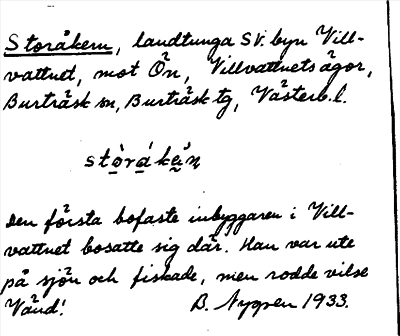 Storåkern, landtunga SV. byn Vill-
vattnet, mot Ön, Villvattnets ägor,
Burträsk sn, Burträsk tg, Västerb. l.
stòrákèn
Den första bofaste inbyggaren i Vill-
vattnet bosatte sig där. Han var ute
på sjön och fiskade, men rodde vilse
Vänd!
B. Nygren 1933.